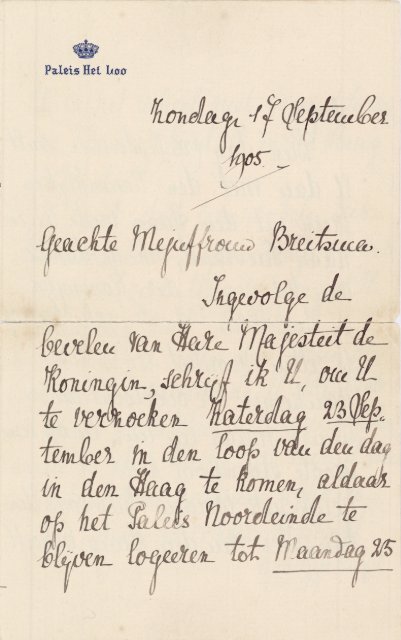 Paleis Het Loo
Zondag, 17 September
1905.
Geachte Mejuffrouw Breitsma.
Ingevolge de
bevelen van Hare Majesteit de
Koningin, schrijf ik U, om U
te verzoeken Zaterdag 23 Sep-
tember in den loop van den dag
in den Haag te komen, aldaar
op het Paleis Noordeinde te
blijven logeeren tot Maandag 25